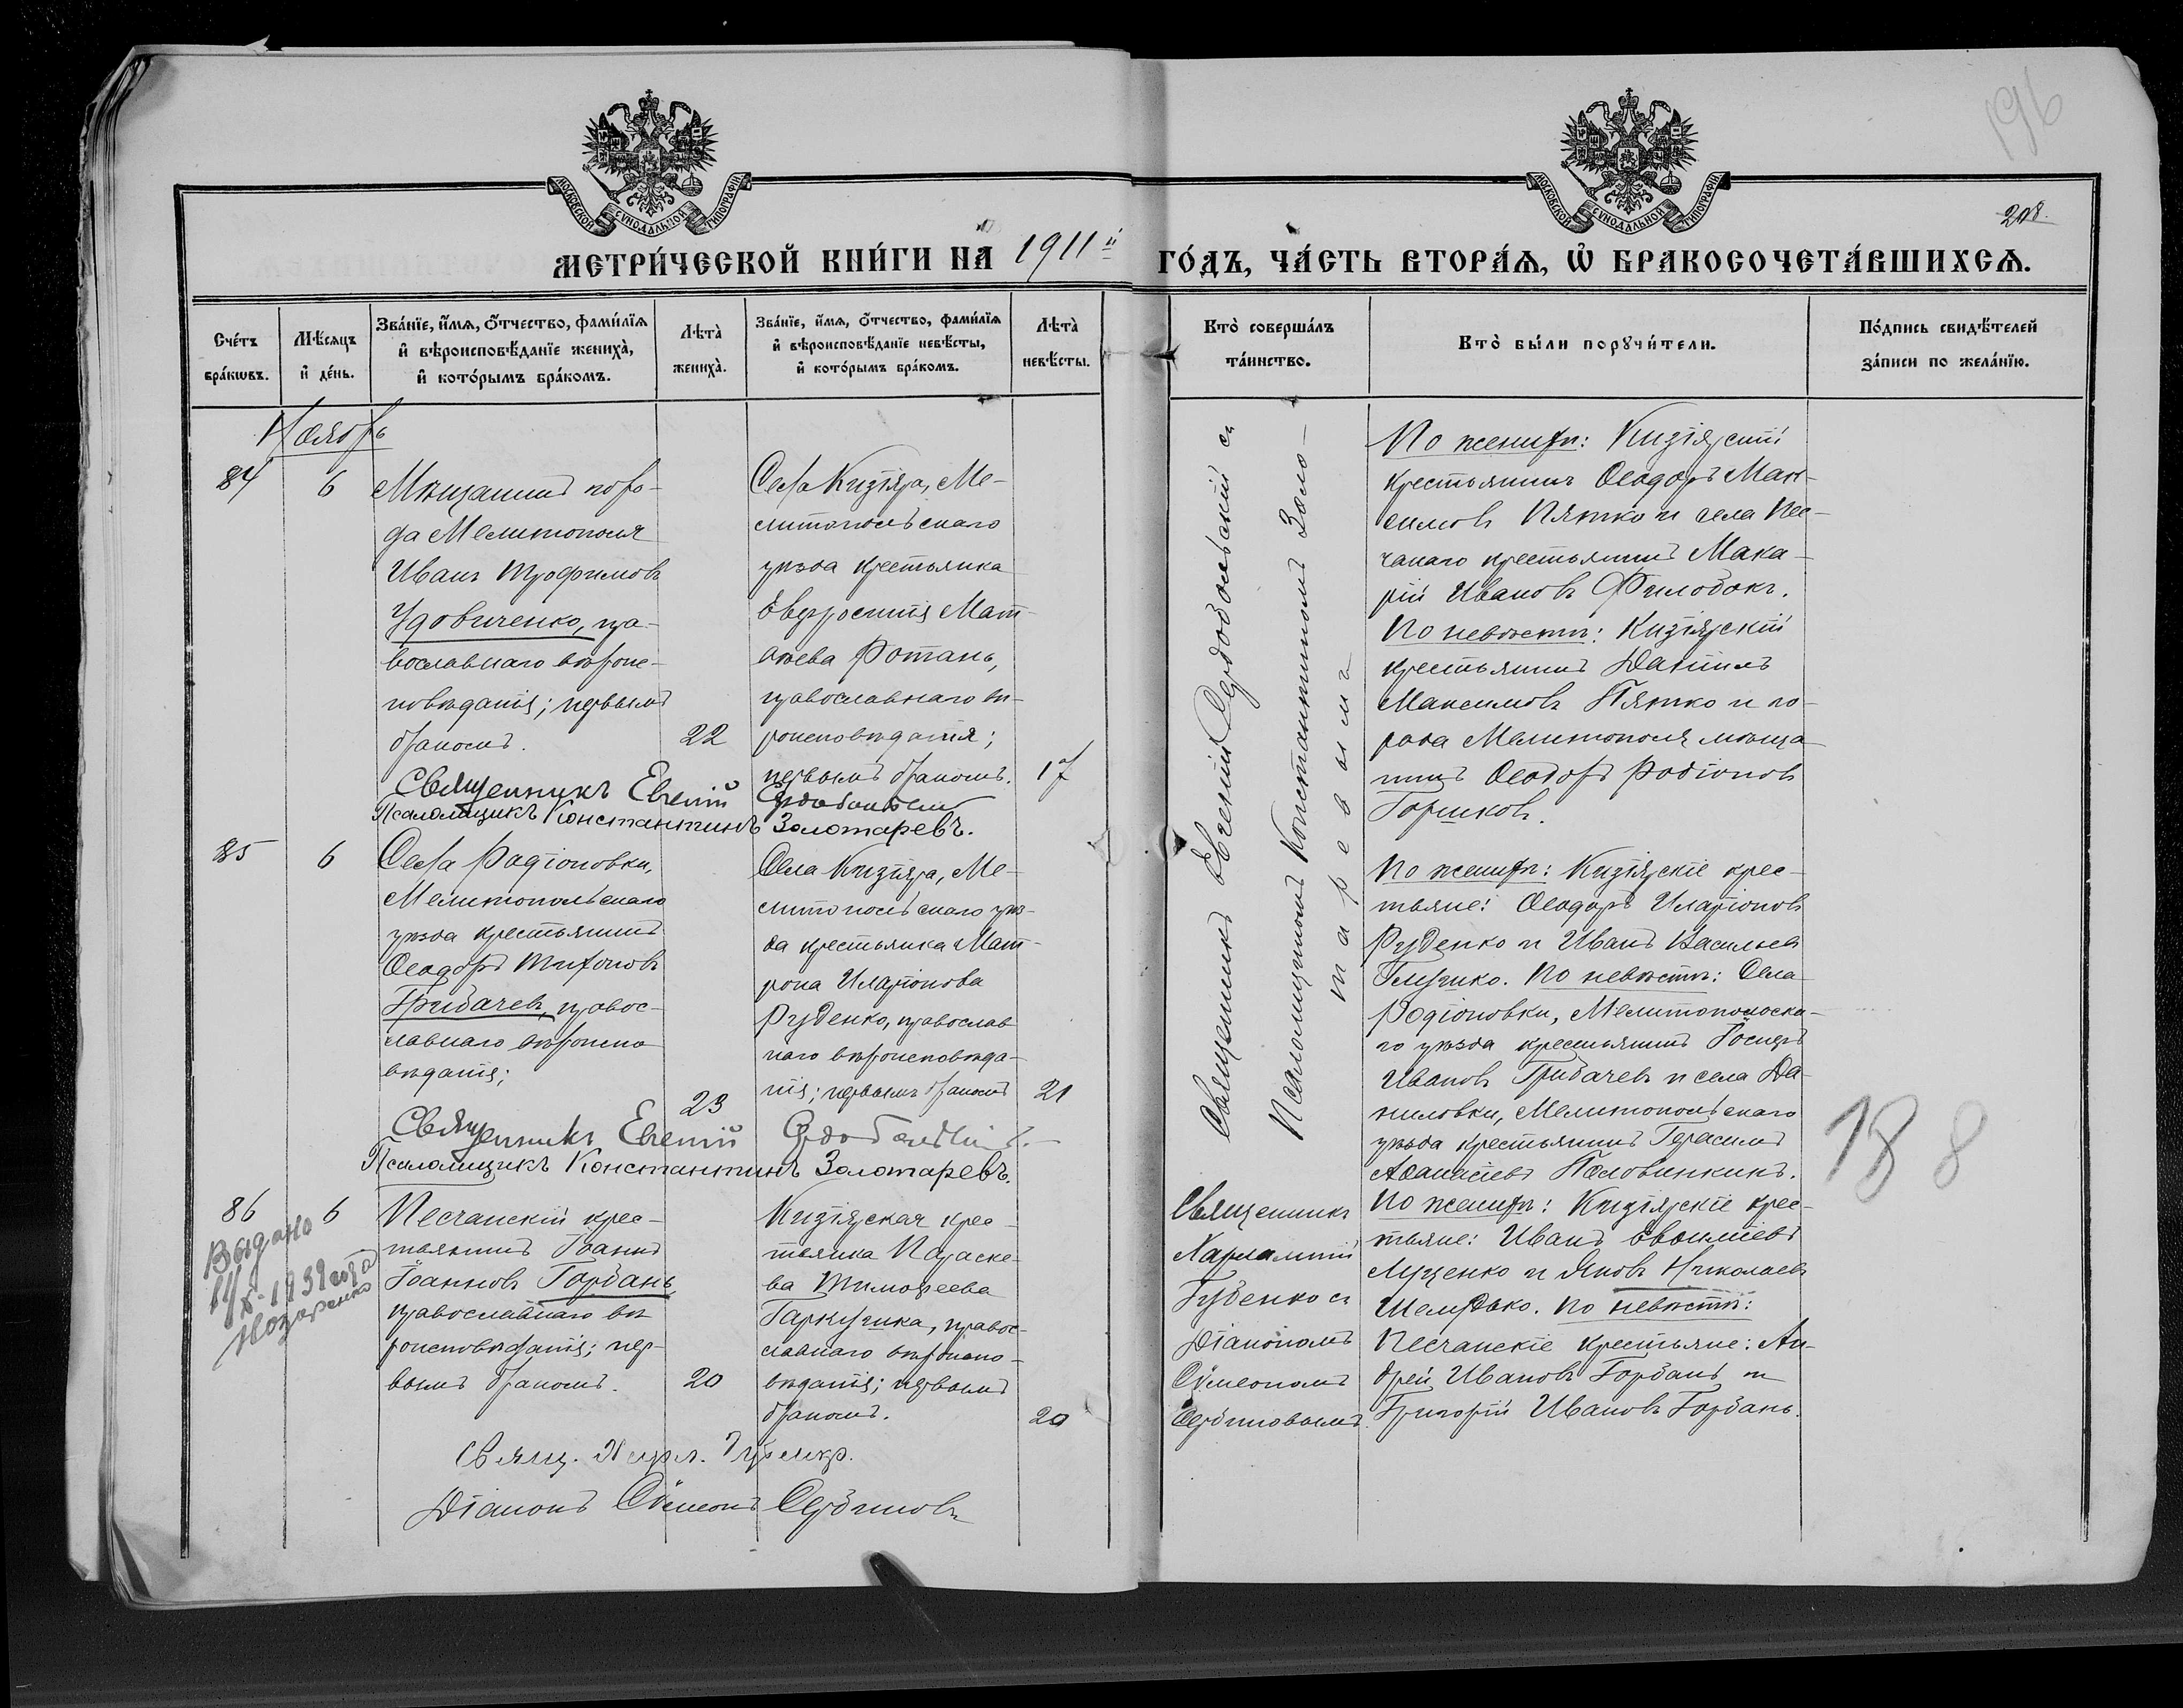 196
208.
МОСКОВСКОЙ СѴНОДАЛЬНОЙ ТИПОГРАФІИ
МОСКОВСКОЙ СѴНОДАЛЬНОЙ ТИПОГРАФІИ
МЕТРИ́ЧЕСКОЙ КНИ́ГИ НА 1911й ГО́ДЪ, ЧА́СТЬ ВТОРА́Я, Ѡ БРАКОСОЧЕТА́ВШИХСЯ.
Сче́тъ бра́кѡвъ.
Мѣ́сяцъ и де́нь.
Зва́нїе, и́мя, ѻ́тчество, фами́лїя и вѣроисповѣ́данїе жениха̀, и кото́рымъ бра́комъ.
Лѣта̀ жениха̀.
Зва́нїе, и́мя, ѻ́тчество, фами́лїя и вѣроисповѣ́данїе невѣ́сты, и кото́рымъ бра́комъ.
Лѣта̀ невѣ́сты.
Кто̀ соверша́лъ та́инство.
Кто̀ бы́ли порꙋчи́тели.
По́дпись свидѣ́телей за́писи по жела́нїю.
Ноябрь
84
6
Мѣщанинъ горо-
да Мелитополя
Иванъ Трофимовъ
Удовиченко, пра-
вославнаго вѣроис-
повѣданія; первымъ
бракомъ.
22
Села Кизіяра, Ме-
литопольскаго
уѣзда крестьянка
Евфросинія Мат-
ѳѣева Ротань,
православнаго вѣ-
роисповѣданія;
первымъ бракомъ.
17
Священникъ Евгеній Сердобольскій
Псаломщикъ Константинъ Золотаревъ.
Священникъ Евгеній Сердобольскій съ
Псаломщикомъ Константиномъ Золо-
таревымъ
По женихѣ: Кизіярскій
крестьянинъ Ѳеодоръ Мак-
симовъ Пятко и села Пес-
чанаго крестьянинъ Мака-
рій Ивановъ Филобокъ.
По невѣстѣ: Кизіярскій
крестьянинъ Даніилъ
Максимовъ Пятко и го-
рода Мелитополя мѣща-
нинъ Ѳеодоръ Родіоновъ
Горшковъ.
85
6
Села Радіоновки,
Мелитопольскаго
уѣзда крестьянинъ
Ѳеодоръ Тихоновъ
Грибачевъ, правос-
лавнаго вѣроиспо
вѣданія;
23
Села Кизіяра, Ме-
литопольскаго уѣз-
да крестьянка Мат-
рона Иларіонова
Руденко, православ
наго вѣроисповѣда-
нія; первымъ бракомъ
21
Священникъ Евгеній Сердобольскій.
Псаломщикъ Константинъ Золотаревъ.
По женихѣ: Кизіярскіе крес-
тьяне: Ѳеодоръ Иларіоновъ
Руденко и Иванъ Васильевъ
Глушко. По невѣстѣ: Села
Родіоновки, Мелитопольска-
го уѣзда крестьянинъ Іосифъ
Ивановъ Грибачевъ и села Да-
ниловки, Мелитопольскаго
уѣзда крестьянинъ Герасимъ
Аѳанасіевъ Половинкинъ.
188
86
6
Выдано
11/X-1939 года
Назаренко
Песчанскій крес-
тьянинъ Іоаннъ
Іоанновъ Горбань,
православнаго вѣ
роисповѣданія; пер-
вымъ бракомъ.
20
Кизіярская крес-
тьянка Параске-
ва Тимоѳеева
Гаркушка, правос-
лавнаго вѣроиспо-
вѣданія; первымъ
бракомъ.
20
Свящ. Харл. Губенко.
Діаконъ Сѵмеонъ Сербиновъ
Священникъ
Харлампій
Губенко съ
Діакономъ
Сѵмеономъ
Сербиновымъ.
По женихѣ: Кизіярскіе крес-
тьяне: Иванъ Евѳиміевъ
Луценко и Яковъ Николаевъ
Шелудько. По невѣстѣ:
Песчанскіе крестьяне: Ан-
дрей Ивановъ Горбань и
Григорій Ивановъ Горбань.